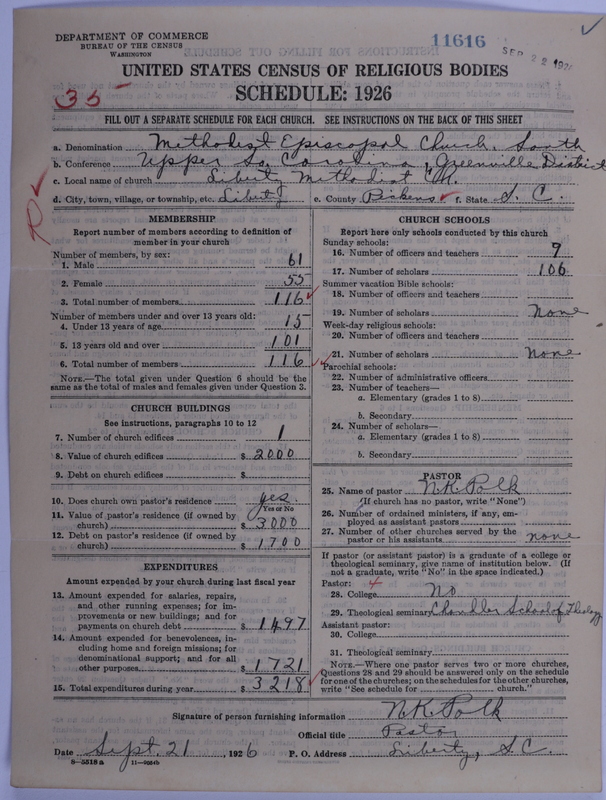 DEPARTMENT OF COMMERCE
BUREAU OF THE CENSUS
WASHINGTON
11616
SEP 22 192
UNITED STATES CENSUS OF RELIGIOUS BODIES
35
SCHEDULE: 1926
FILL OUT A SEPARATE SCHEDULE FOR EACH CHURCH. SEE INSTRUCTIONS ON THE BACK OF THIS SHEET
a. Denomination Methodist Episcopal Church, South
b. Conference Upper So. Carolina, Greenville District
c. Local name of church Liberty Methodist Ch.
d. City, town, village, or township, etc. Liberty e. County Pickens f. State S. C.
R
MEMBERSHIP
Report number of members according to definition of
member in your church
Number of members, by sex:
1. Male 61
2. Female 55
3. Total number of members 116
Number of members under and over 13 years old:
4. Under 13 years of age 15
5. 13 years old and over 101
6. Total number of members 116
NOTE.—The total given under Question 6 should be the
same as the total of males and females given under Question 3.
CHURCH BUILDINGS
See instructions, paragraphs 10 to 12
7. Number of church edifices 1
8. Value of church edifices $ 2000
9. Debt on church edifices $
10. Does church own pastor's residence yes.
Yes or No
11. Value of pastor's residence (if owned by
church) $ 3000
12. Debt on pastor's residence (if owned by
church) $ 1700
EXPENDITURES
Amount expended by your church during last fiscal year
13. Amount expended for salaries, repairs,
and other running expenses; for im-
provements or new buildings; and for
payments on church debt $ 1497
14. Amount expended for benevolences, in-
cluding home and foreign missions; for
denominational support; and for all
other purposes $ 1721
15. Total expenditures during year $ 3218
CHURCH SCHOOLS
Report here only schools conducted by this church
Sunday schools:
16. Number of officers and teachers 9
17. Number of scholars 106
Summer vacation Bible schools:
18. Number of officers and teachers
19. Number of scholars None
Week-day religious schools:
20. Number of officers and teachers
21. Number of scholars None
Parochial schools:
22. Number of administrative officers
23. Number of teachers—
a. Elementary (grades 1 to 8)
b. Secondary
24. Number of scholars—
a. Elementary (grades 1 to 8)
b. Secondary
PASTOR
25. Name of pastor N. K. Polk
(If church has no pastor, write "None")
26. Number of ordained ministers, if any, em-
ployed as assistant pastors
27. Number of other churches served by the
pastor or his assistants none
If pastor (or assistant pastor) is a graduate of a college or
theological seminary, give name of institution below. (If
not a graduate, write "No" in the space indicated.)
Pastor: 4
28. College No
29. Theological seminary Chandler School of Theology
Assistant pastor:
30. College
31. Theological seminary
NOTE.—Where one pastor serves two or more churches,
Questions 28 and 29 should be answered only on the schedule
for one of the churches; on the schedules for the other churches,
write "See schedule for church."
Signature of person furnishing information N. K. Polk
Official title Pastor
Date Sept. 21, 1926 P. O. Address Liberty, S.C.
8—5518 a 11—9084b